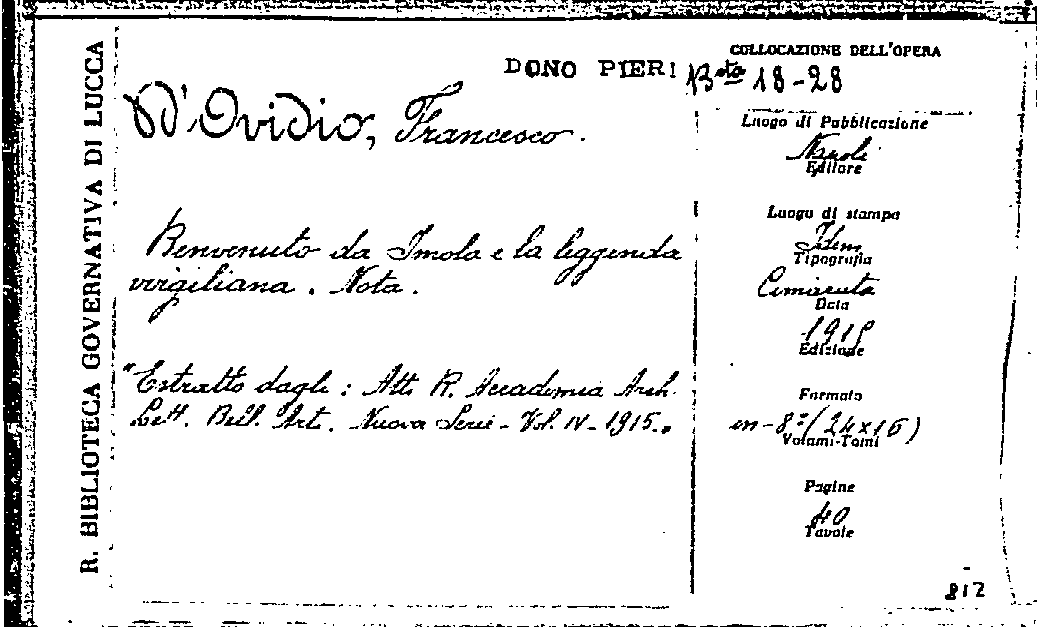 R. BIBLIOTECA GOVERNATIVA DI LUCCA
DONO PIERI
COLLOCAZIONE DELL'OPERA
Bta 18-28
D'Ovidio, Francesco.
Benvenuto da Imola e la leggenda
virgiliana. Nota.
"Estratto dagli: Atti R. Accademia Arch.
Lett. Bell. Arti. Nuova Serie - Vol. IV - 1915."
Luogo di Pubblicazione
Napoli
Editore
Luogo di stampa
Idem
Tipografia
Cimmaruta
Data
1915
Edizione
Formato
in-8° (24x16)
Volumi-Tomi
Pagine
40
Tavole
812